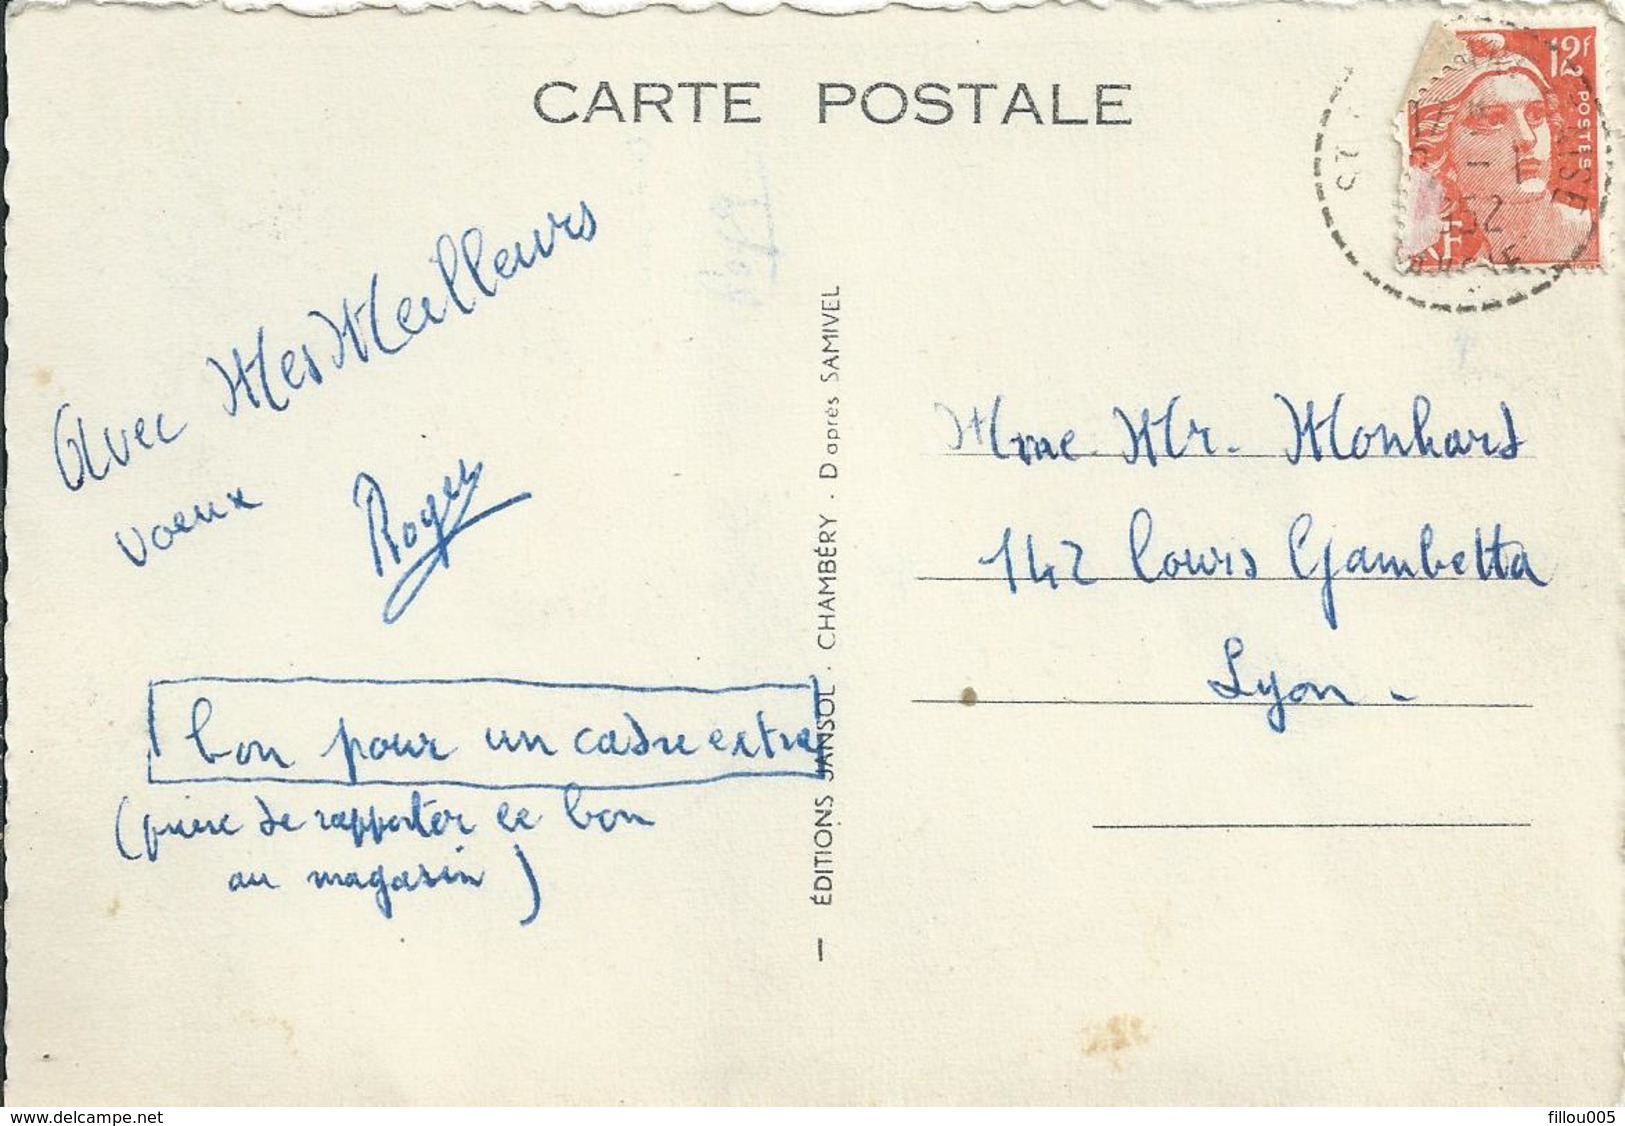 CARTE POSTALE
12F
POSTES
RF
1952
Avec Mes Meilleurs
voeux
Roger
bon pour un cadre extra
(prière de rapporter ce bon
au magasin)
— ÉDITIONS JANSOL . CHAMBÉRY . D'après SAMIVEL
Mme Mr. Monhard
142 Cours Gambetta
Lyon -
www.delcampe.net
fillou005